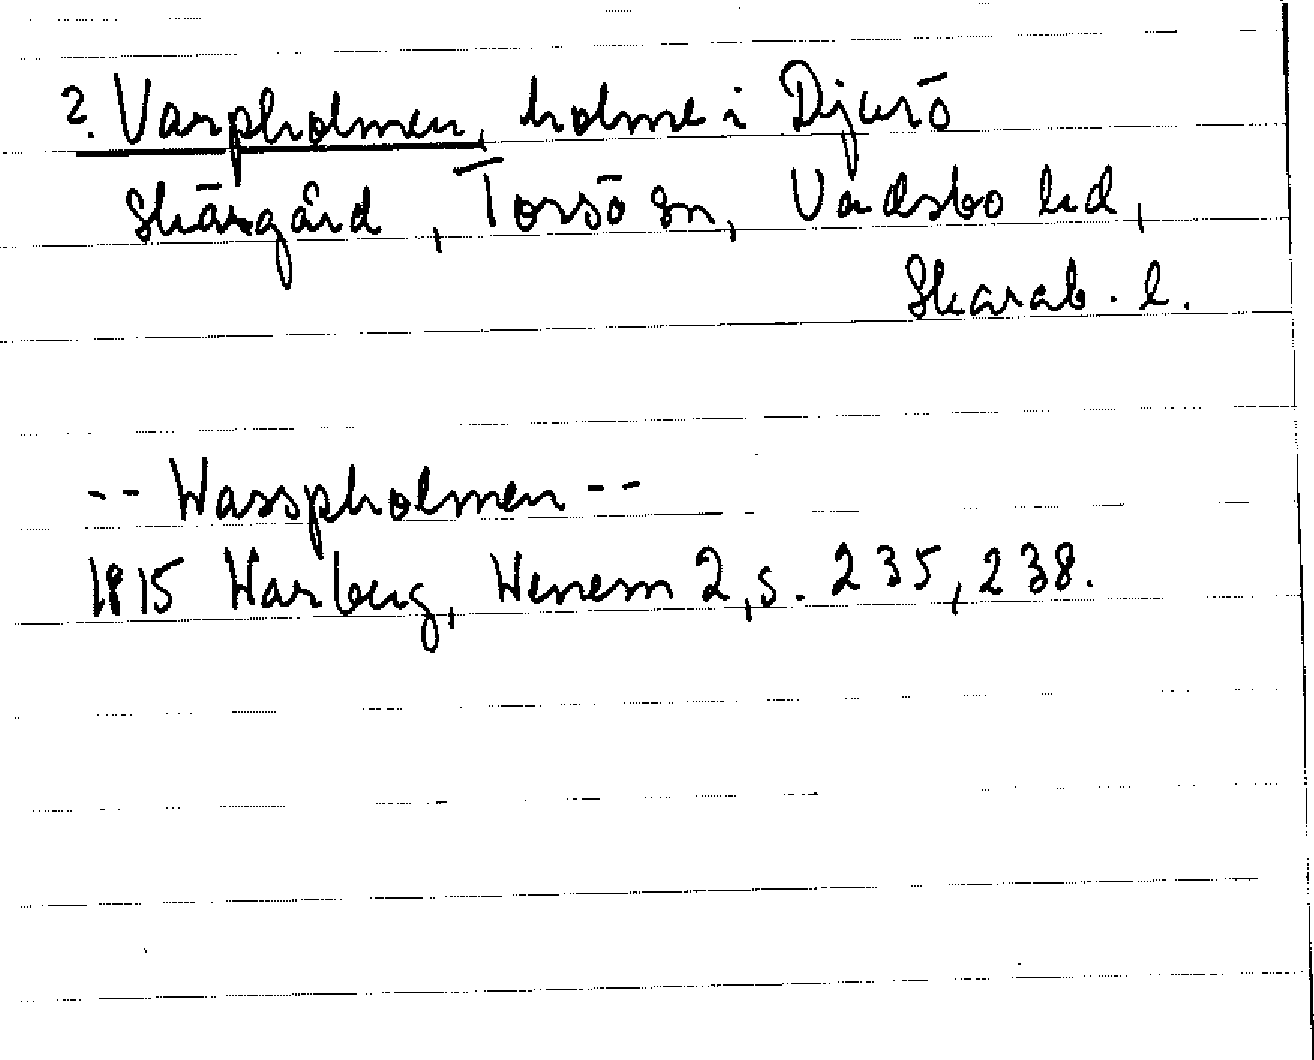 2. Varpholmen, holme i Djurö
Skärgård, Torsö sn, Vadsbo hd,
Skarab. l.
-- Wasspholmen --
1815 Warberg, Wenern 2, s. 235, 238.